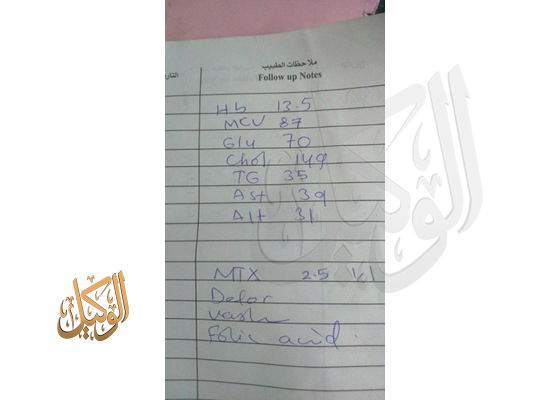 ملاحظات الطبيب
التار
Follow up Notes
Hb 13.5
MCV 87
Glu 70
Chol 149
TG 35
Ast 39
Alt 31
MTX 2.5 1x1
Defar
Folic acid
الوكيل
الوكيل